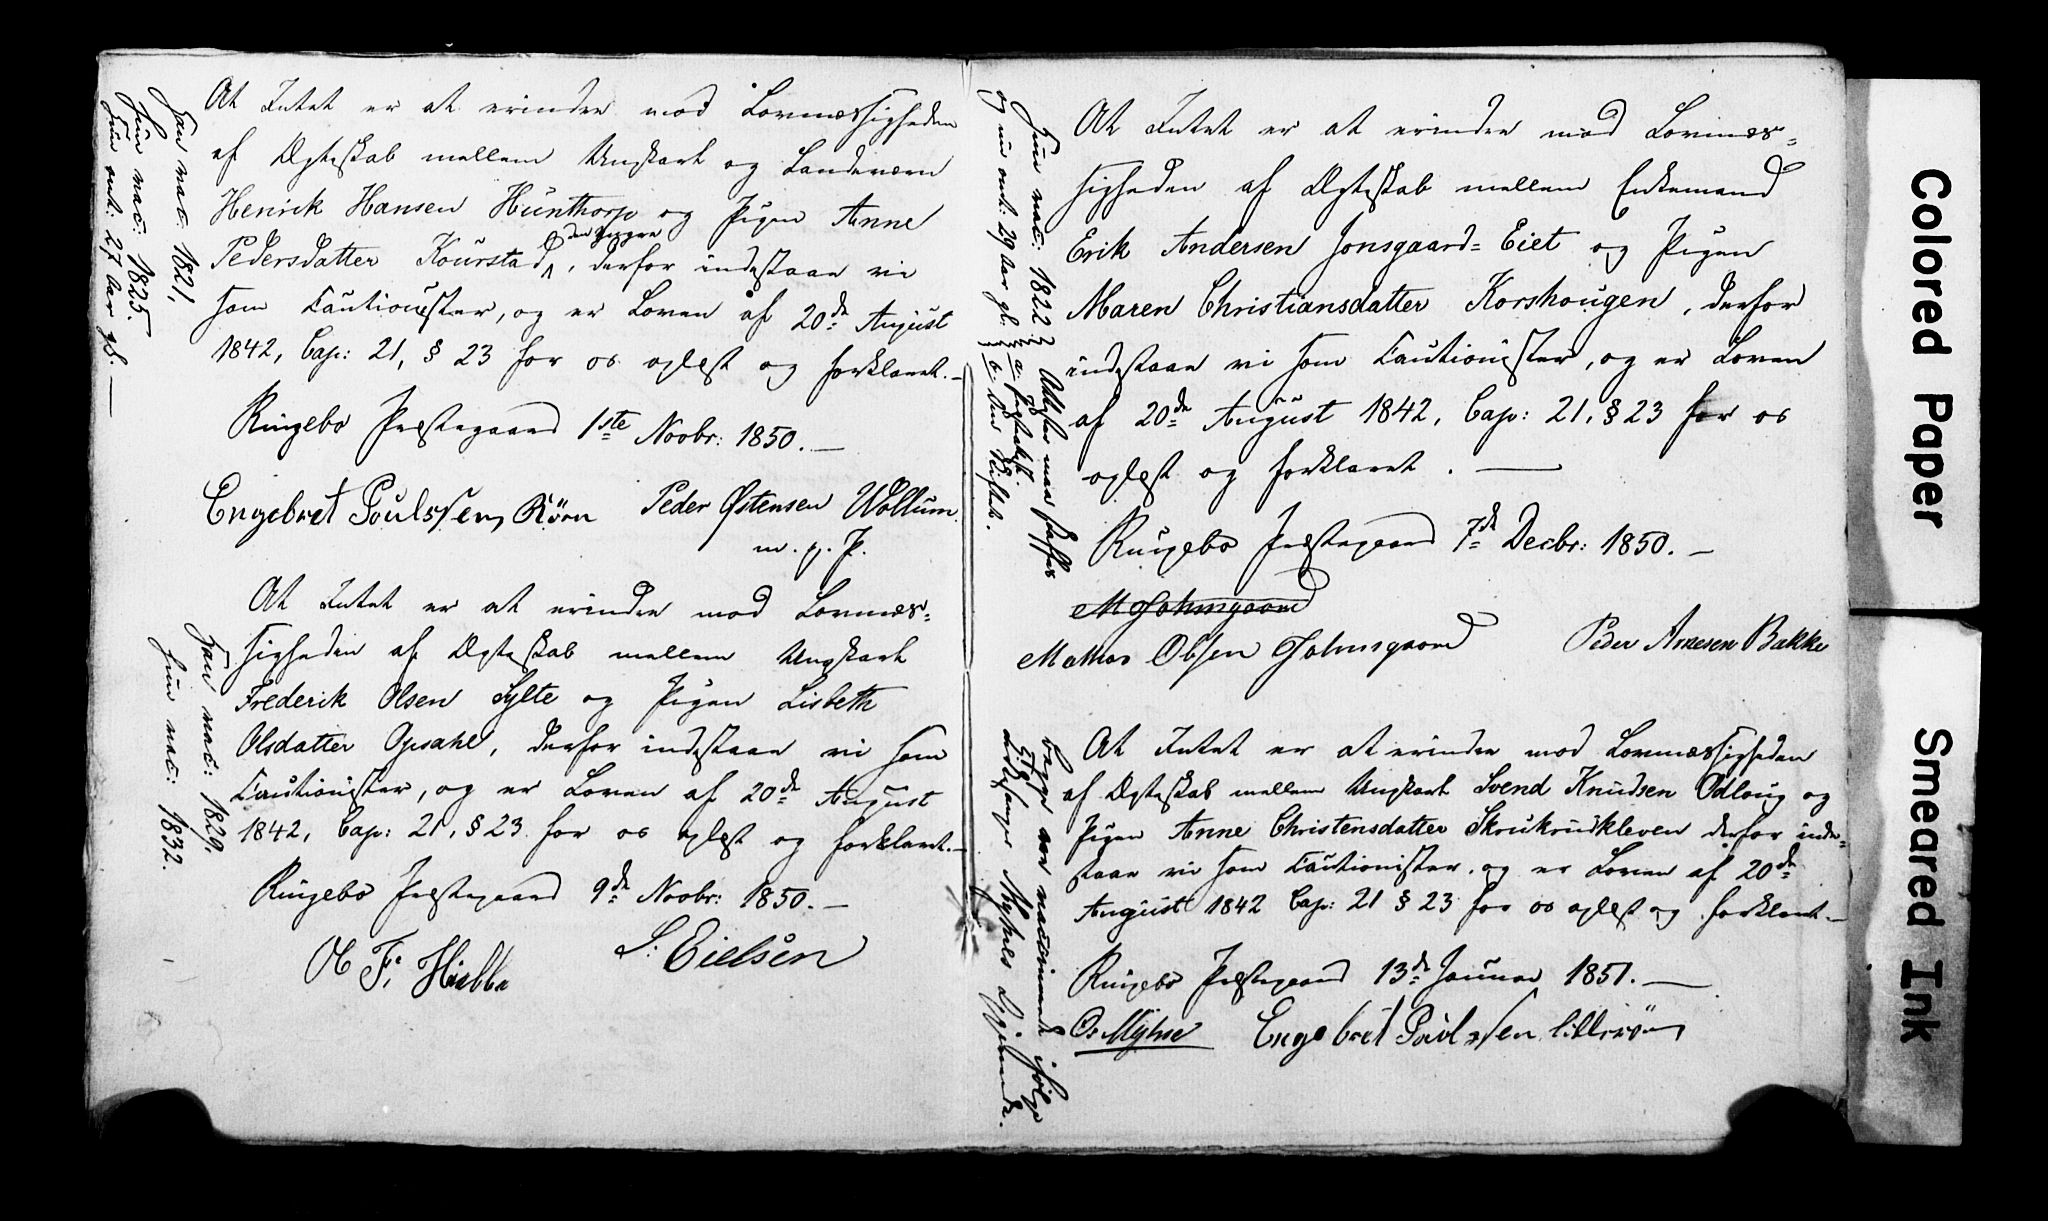 At Intet er at erindre mod Lovmæssigheden
af Ægteskab mellem Ungkarl og Landeværn
Henrik Hansen Hunthorp og Pigen Anne
Pedersdatter Kourstad den yngre, derfor indestaae vi
som Cautionister, og er Loven af 20de August
1842, Cap: 21, § 23 for os oplæst og forklaret.—
Ringebo Præstegaard 1ste Novbr: 1850.—
Engebret Poulssen Røen Peder Østensen Wollum
m. p. P.
Han vac: 1821,
Hun vac: 1825.
Hun omt: 27 Aar gl.—
At Intet er at erindre mod Lovmæs-
sigheden af Ægteskab mellem Ungkarl
Frederik Olsen Sylte og Pigen Lisbeth
Olsdatter Opsahl, derfor indestaae vi som
Cautionister, og er Loven af 20de August
1842, Cap: 21, § 23 for os oplæst og forklaret.—
Ringebo Præstegaard 9de Novbr: 1850.—
O F. S. Eielsen
Han vac: 1829.
Hun vac: 1832.
At Intet er at erindre mod Lovmæs-
sigheden af Ægteskab mellem Enkemand
Erik Andersen Jonsgaard-Eiet og Pigen
Maren Christiansdatter Korshougen, derfor
indestaae vi som Cautionister, og er Loven
af 20de August 1842, Cap: 21, § 23 for os
oplæst og forklaret.—
Ringebo Præstegaard 7de Decbr: 1850.—
M Johnsgaard
Mathias Olsen Johnsgaard Peder Arnesen Bakke
Hun vac: 1822
og nu omt: 29 Aar gl.
Attester maa skaffes
a.
b. Skiftet.
At Intet er at erindre mod Lovmæssigheden
af Ægteskab mellem Ungkarl Svend Knudsen Odloug og
Pigen Anne Christensdatter Skrukrudkleven derfor inde-
staae vi som Cautionister, og er Loven af 20de
August 1842 Cap: 21 § 23 for os oplæst og forklart—
Ringebo Præstegaard 13de Januar 1851.—
Os Myhre Engebret Poulssen Lillerøen
Begge ere vaccinerede ifølge
Myhres Skjønnende.
Colored Paper
Smeared Ink